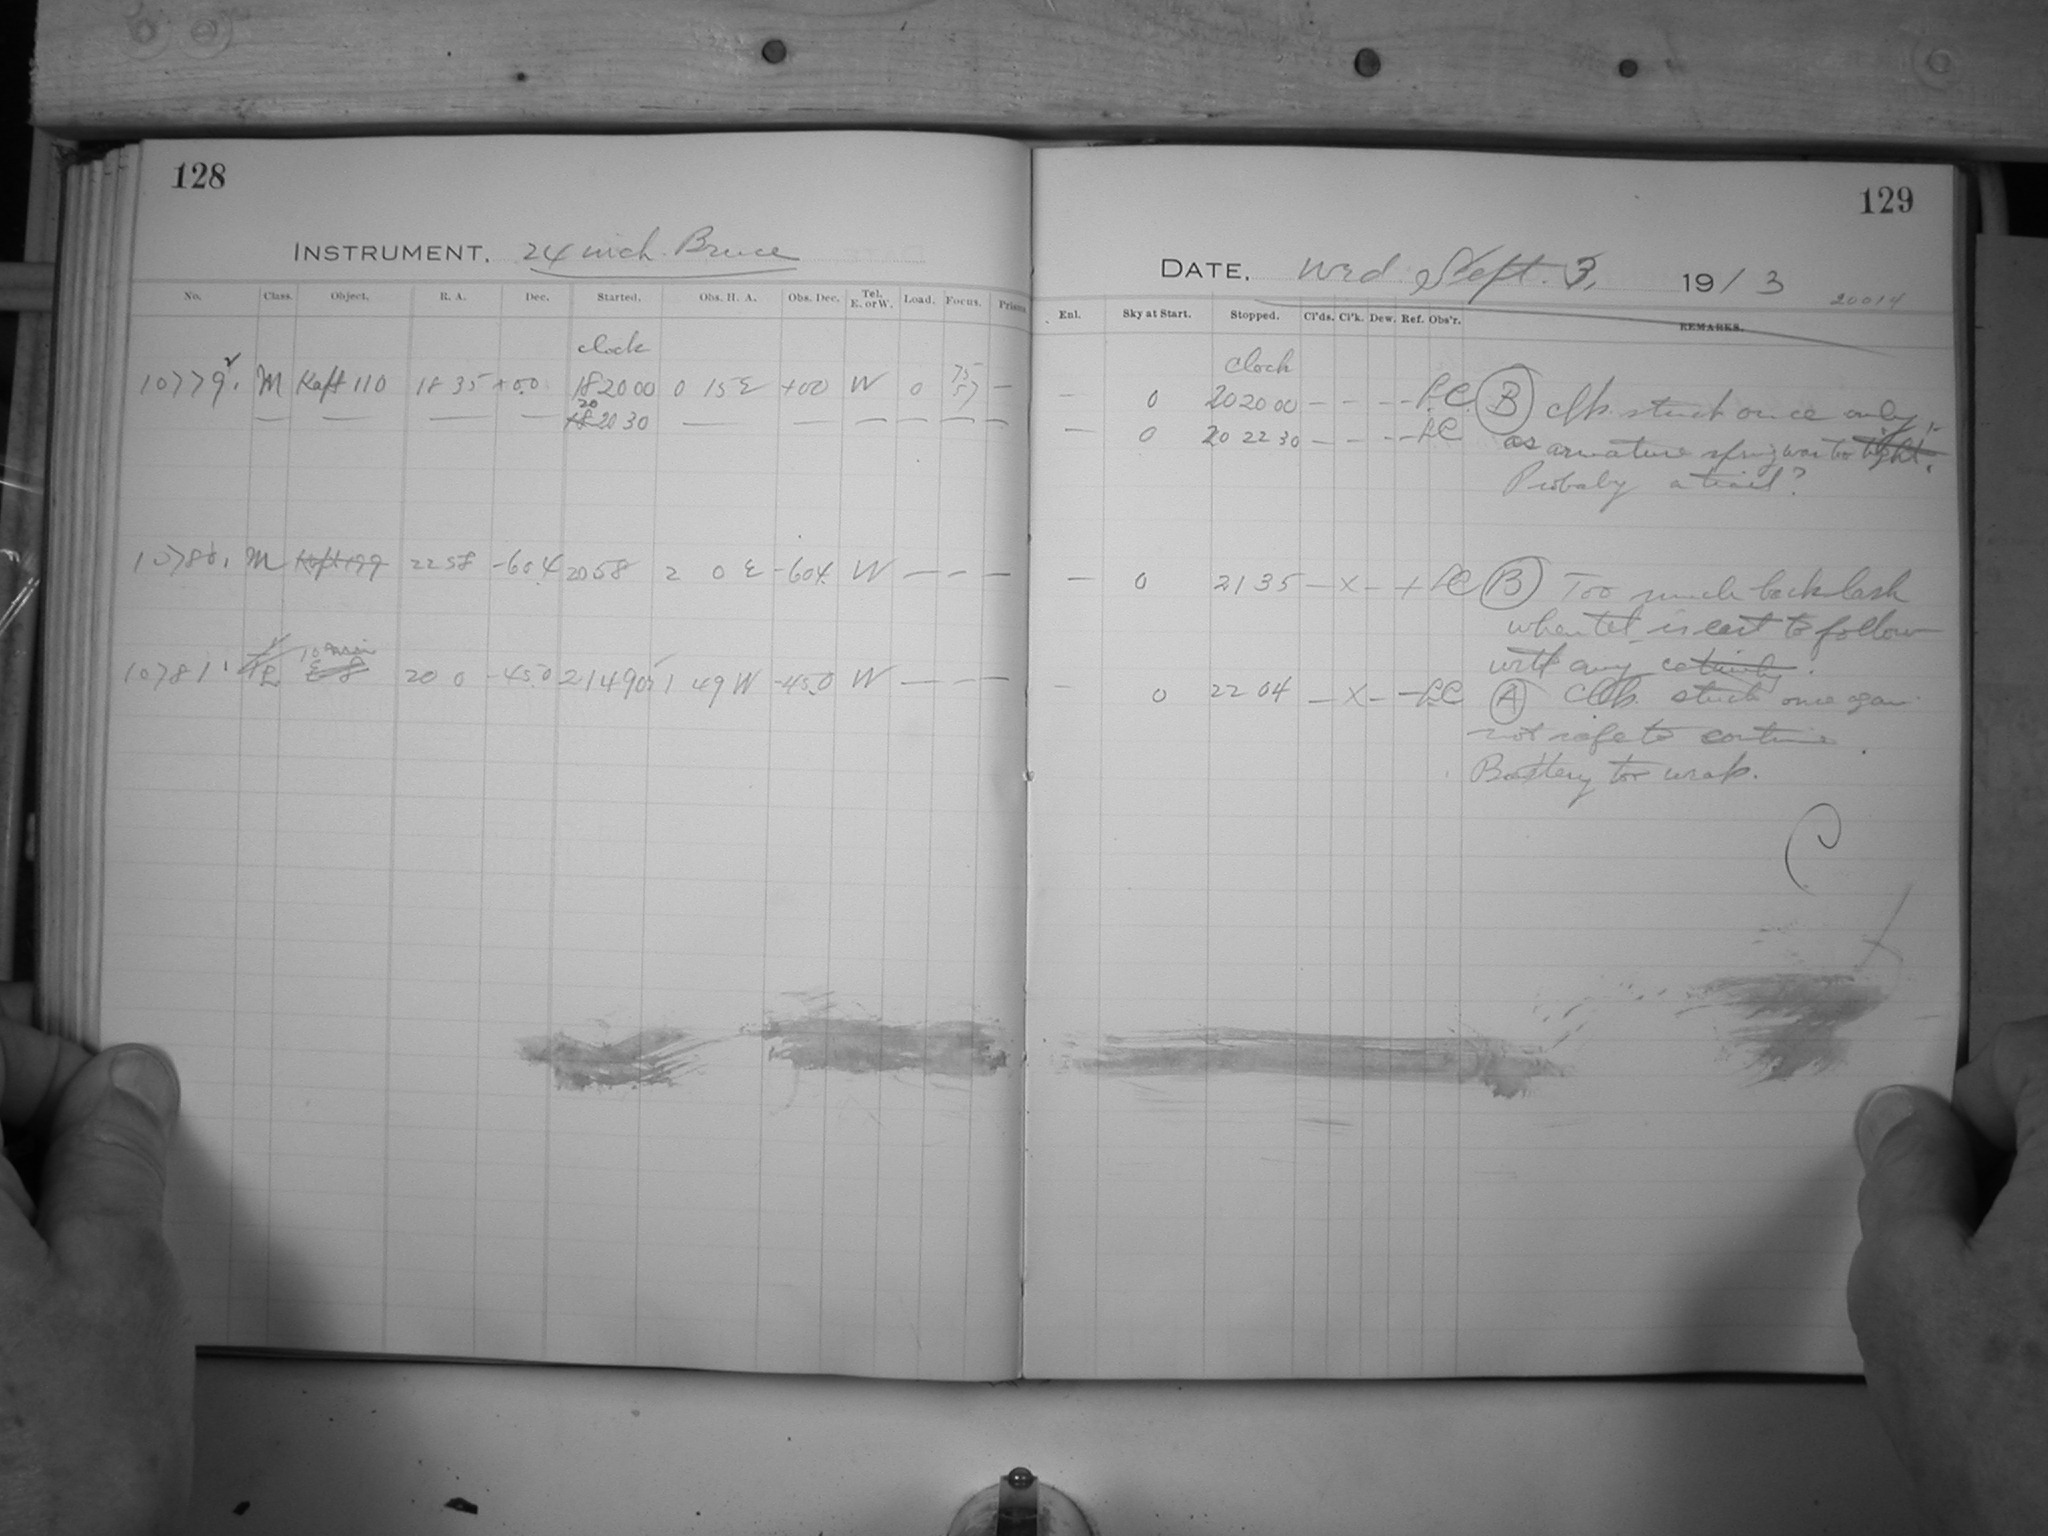 128
INSTRUMENT. 24 inch Bruce
No. Class. Object. R. A. Dec. Started. Obs. H. A. Obs. Dec. Tel. E. or W. Load. Focus. Prisms.
clock
10779. M Kaft 110 18 35 +00 18 20 00 0 15 E +00 W 0 75 57 —
— — — — 20 18 20 30 — — — — — —
10780. M Kaft 199 22 58 -60.4 20 58 2 0 E -604 W — — —
10 min
10781. 20 0 -45.0 21 49 05 1 49 W -45.0 W — — —
129
DATE. Wed Sept. 3, 19/3
20014
Enl. Sky at Start. Stopped. Cl'ds. Cl'k. Dew. Ref. Obs'r. REMARKS.
clock
— 0 20 20 00 — — — — LC (B) Clk. stuck once only,
— 0 20 22 30 — — — — LC as armature spring was too tight.
Probaly a trail?
— 0 21 35 — x — + LC (B) Too much backlash
when tel. is east to follow
with any certainty.
— 0 22 04 — x — — LC (A) Clk. stuck once again
not safe to continue.
Battery too weak.